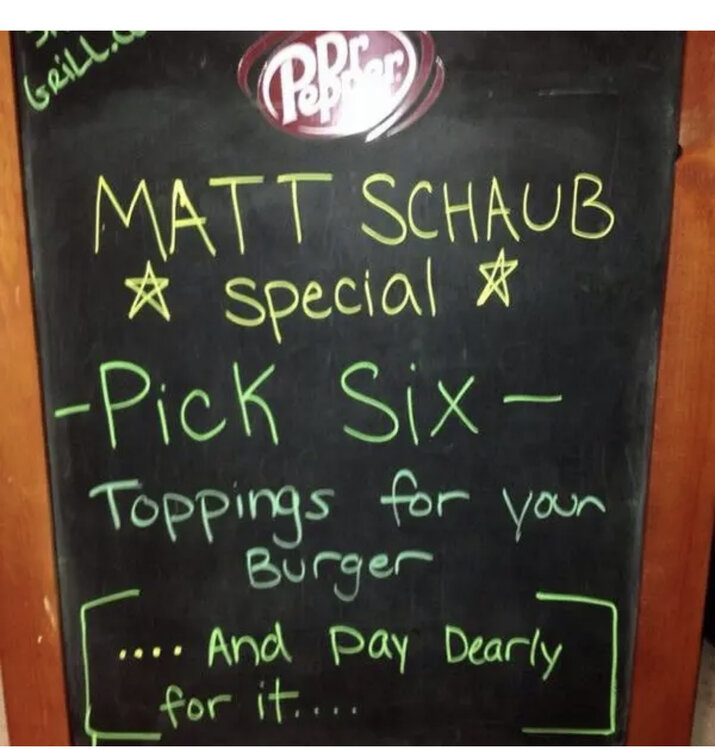 GRILL.
Dr
Pepper
MATT SCHAUB
special
-Pick Six-
Toppings for your
Burger
.... And pay Dearly
for it....